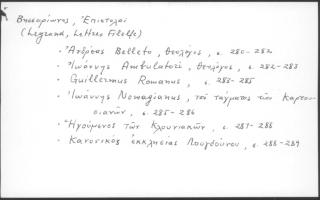 Βησσαρίωνος, Ἐπιστολαί
(Legrand, Lettres Filelfe)
· Ἀνδρέας Belleto, θεολόγος, σ. 280-282
· Ἰωάννης Ambulatori, θεολόγος, σ. 282-283
· Guillermus Romanus, σ. 283-285
· Ἰωάννης Nowagianus, τοῦ τάγματος τῶν Καρτου-
σιανῶν, σ. 285-286
· Ἡγούμενος τῶν Κλουνιακῶν, σ. 287-288
· Κανονικὸς ἐκκλησίας Λουγδούνου, σ. 288-289